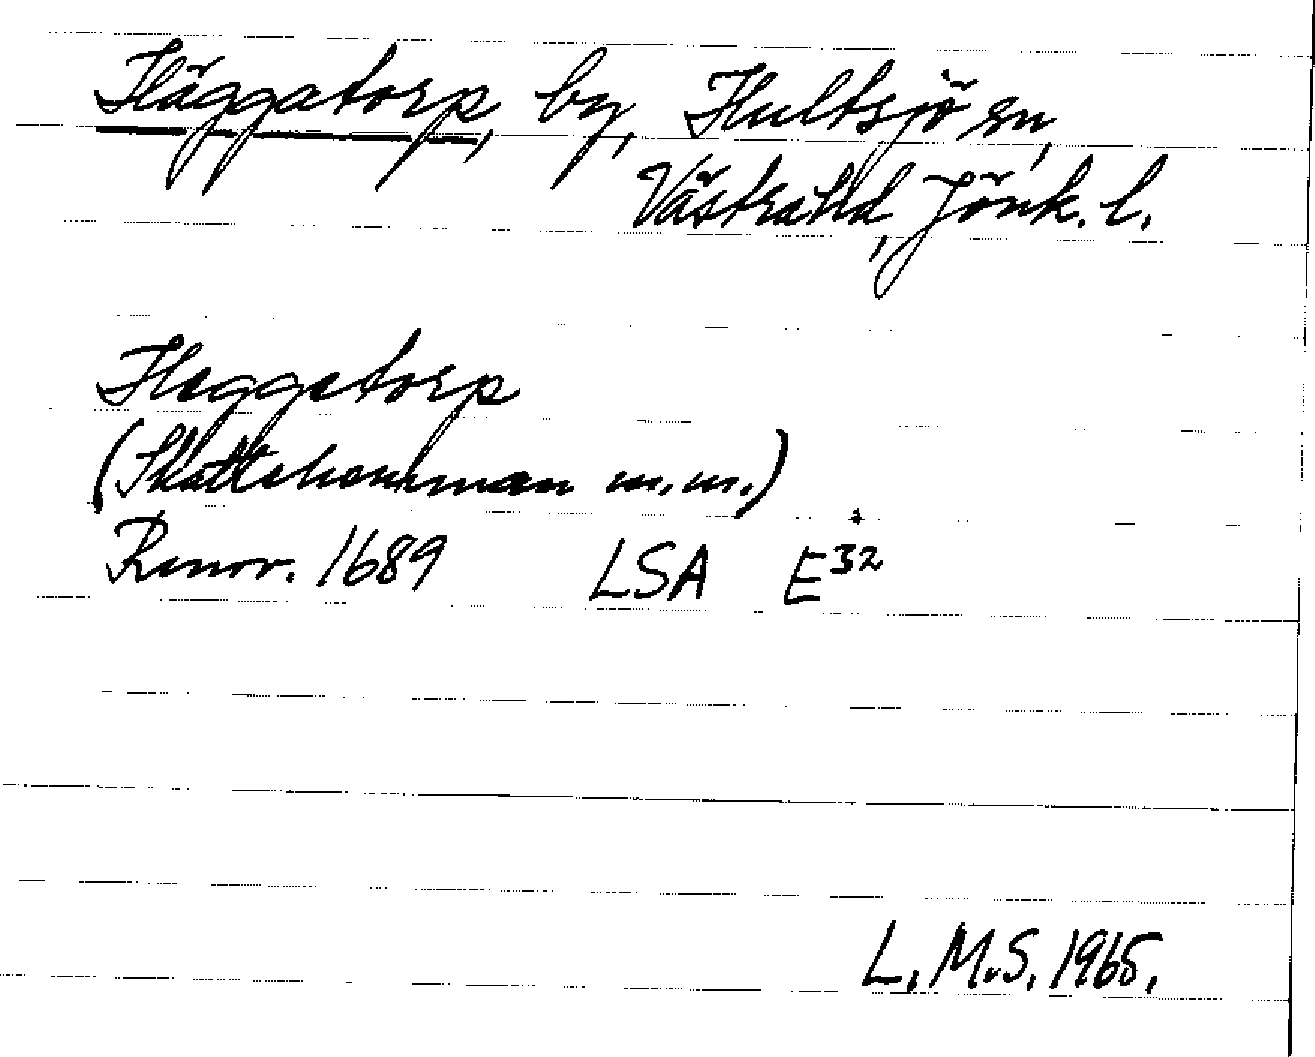 Häggatorp, by, Hultsjö sn,
Västra hd, Jönk. l.
Heggetorp
(Skattehemman m.m.)
Renov. 1689 LSA E32
L.M.S. 1965.